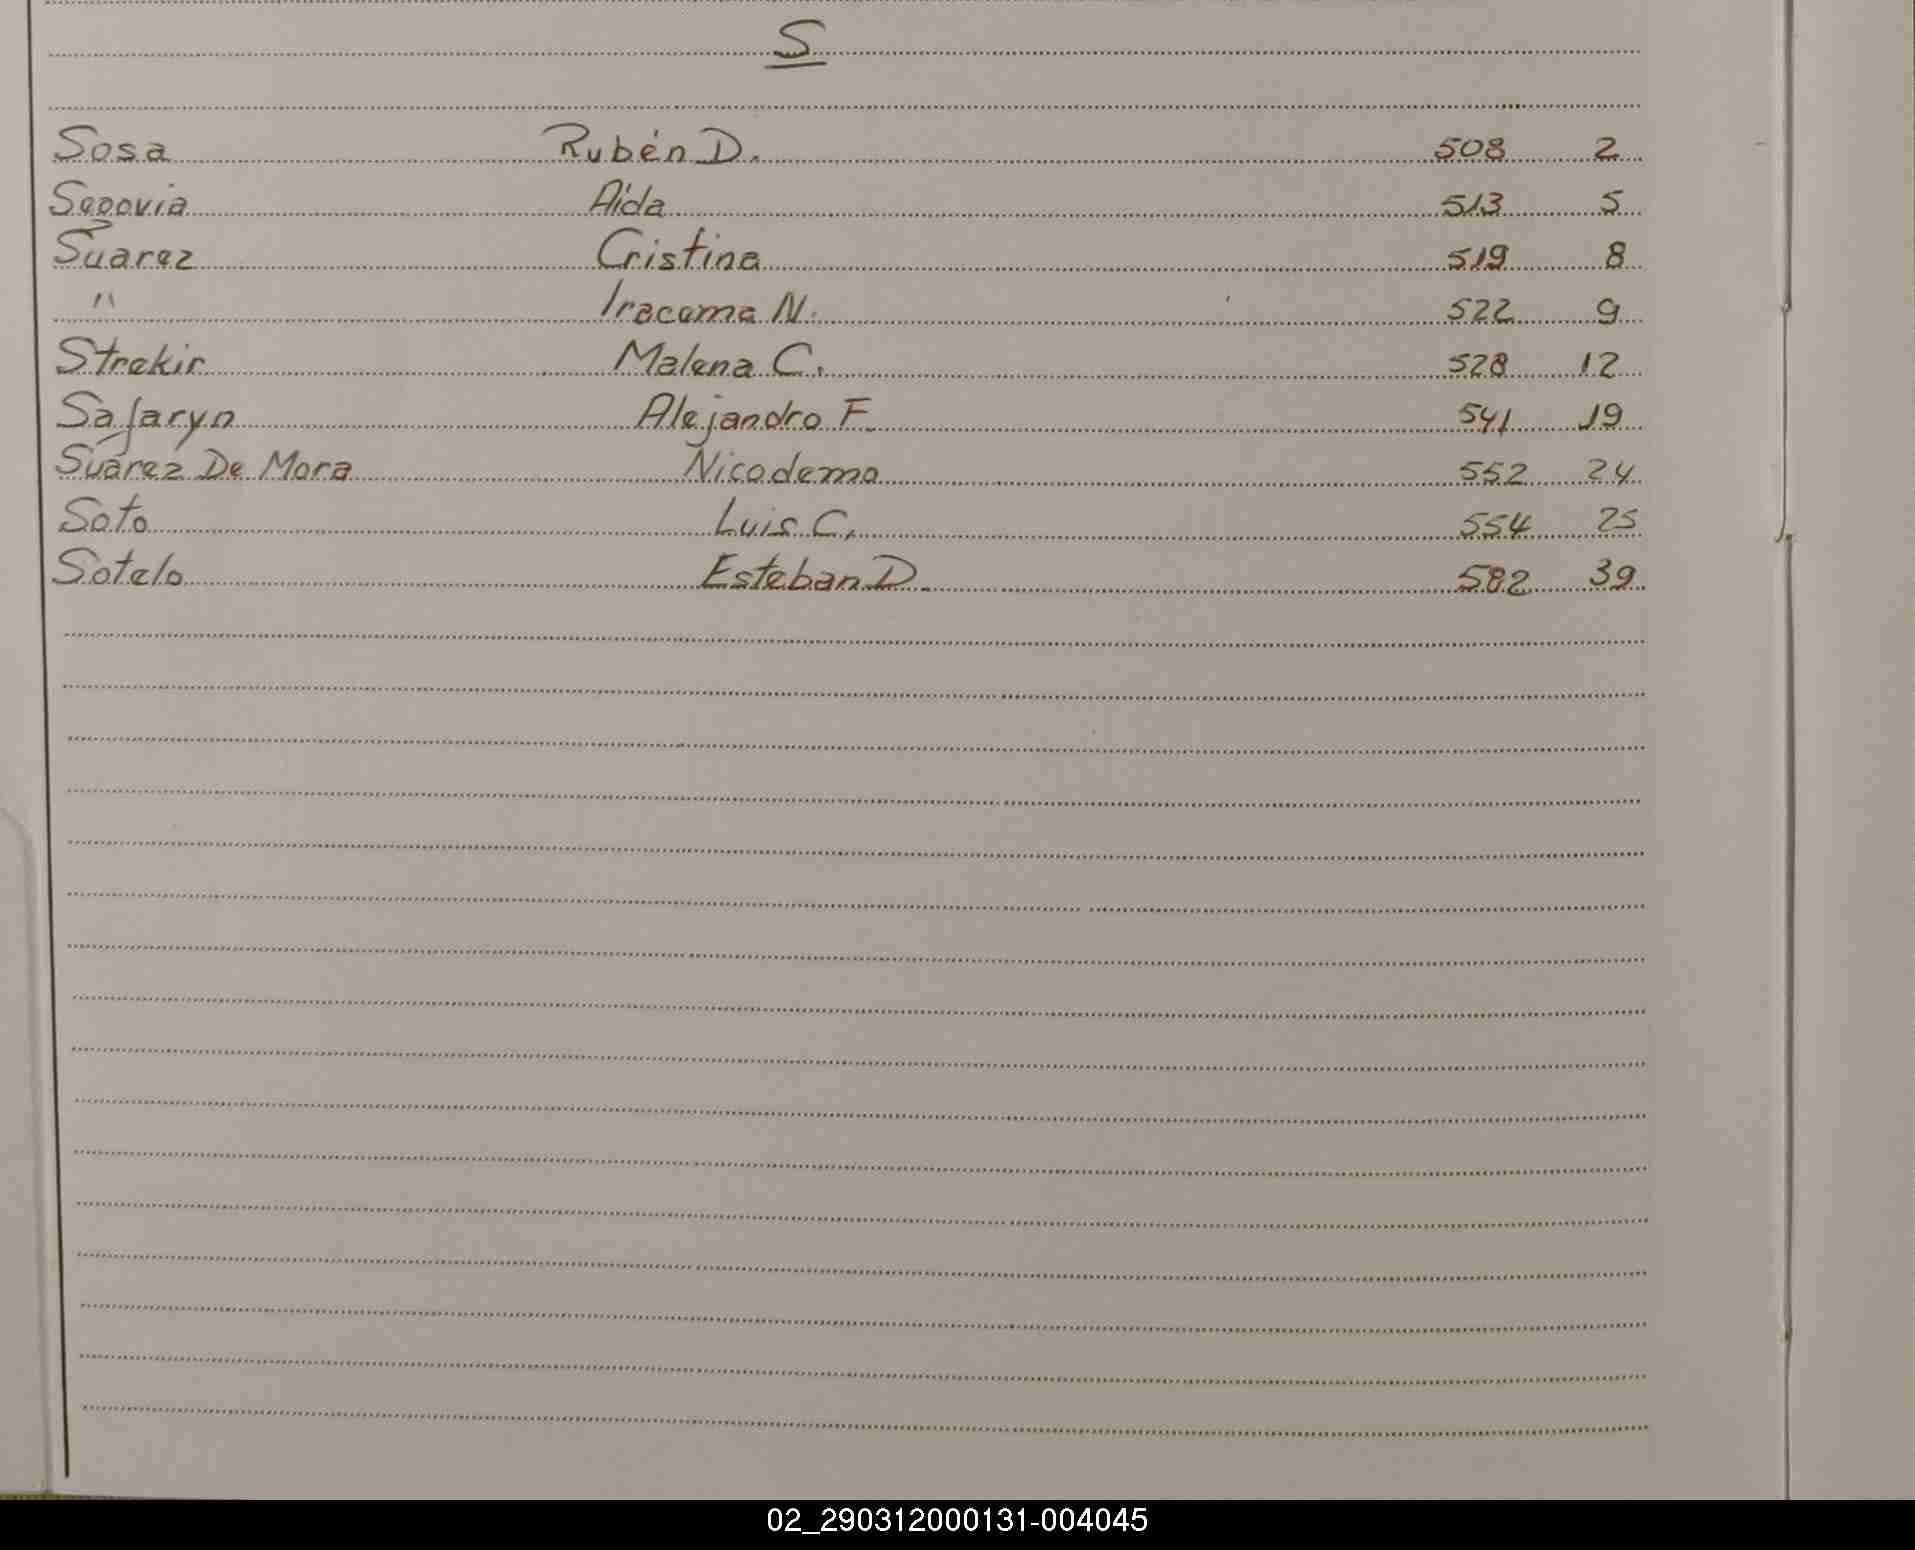 S
Sosa Rubén D. 508 2
Segovia Aída 513 5
Suarez Cristina 519 8
" Iracema N. 522 9
Strekir Malena C. 528 12
Safaryn Alejandro F. 541 19
Suárez De Mora Nicodema 552 24
Soto Luis C. 554 25
Sotelo Esteban D. 582 39
02_290312000131-004045